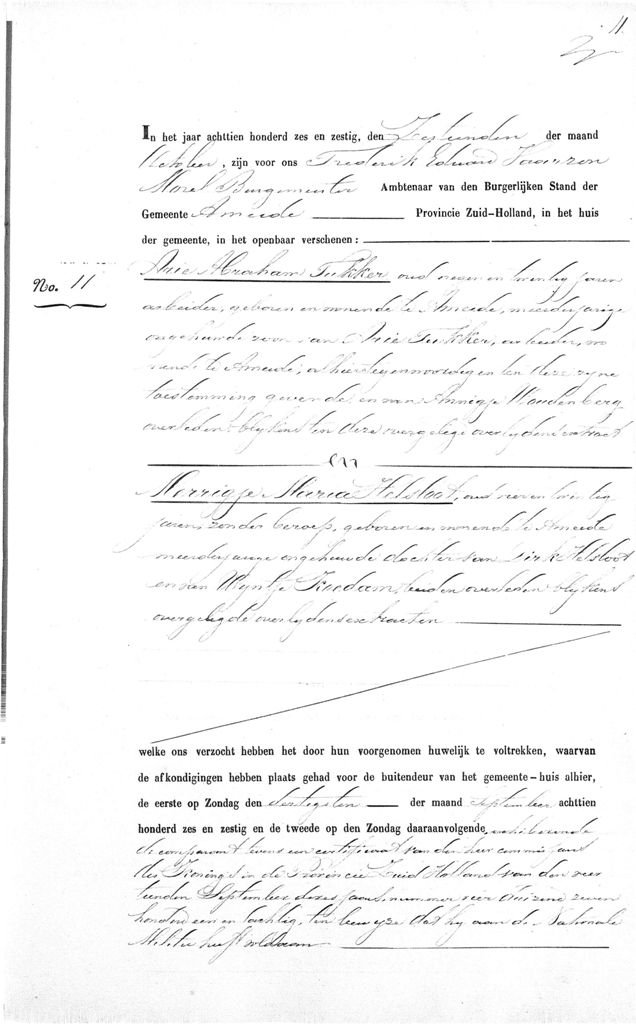 11.
In het jaar achttien honderd zes en zestig, den Zestienden der maand
October, zijn voor ons Frederik Eduard
Morel Burgemeester Ambtenaar van den Burgerlijken Stand der
Gemeente Ameide Provincie Zuid-Holland, in het huis
der gemeente, in het openbaar verschenen:
No. 11
Arie Abraham Tukker oud negen en twintig jaren
arbeider, geboren en wonende te Ameide, meerderjarige
ongehuwde zoon van Arie Tukker, arbeider, wo
nende te Ameide, alhier tegenwoordig en tot deze zijne
toestemming gevende, en van Annigje Woudenberg
overleden blijkens ten deze overgelegde overlydens extract
en
Merrigje Maria Helsloot, oud zeven en twintig
jaren zonder beroep, geboren en wonende te Ameide
meerderjarige ongehuwde dochter van Dirk Helsloot
en van Wyntje beiden overleden blykens
overgelegde overlydensextracten
welke ons verzocht hebben het door hun voorgenomen huwelijk te voltrekken, waarvan
de afkondigingen hebben plaats gehad voor de buitendeur van het gemeente-huis alhier,
de eerste op Zondag den dertigsten der maand September achttien
honderd zes en zestig en de tweede op den Zondag daaraanvolgende, exhiberende
de comparant tevens een certificaat van den heer commissaris
des Konings in de Provincie Zuid Holland van den veer
tienden September dezes jaars, nummer vier duizend zeven
honderd een en tachtig, ten bewyze dat hy aan de Nationale
Militie heeft voldaan